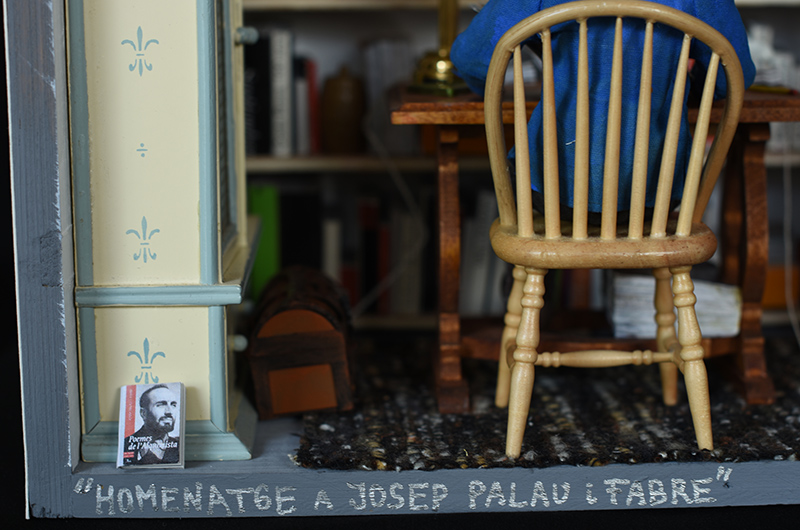 Poemes
de l'Alquimista
"HOMENATGE A JOSEP PALAU i FABRE"